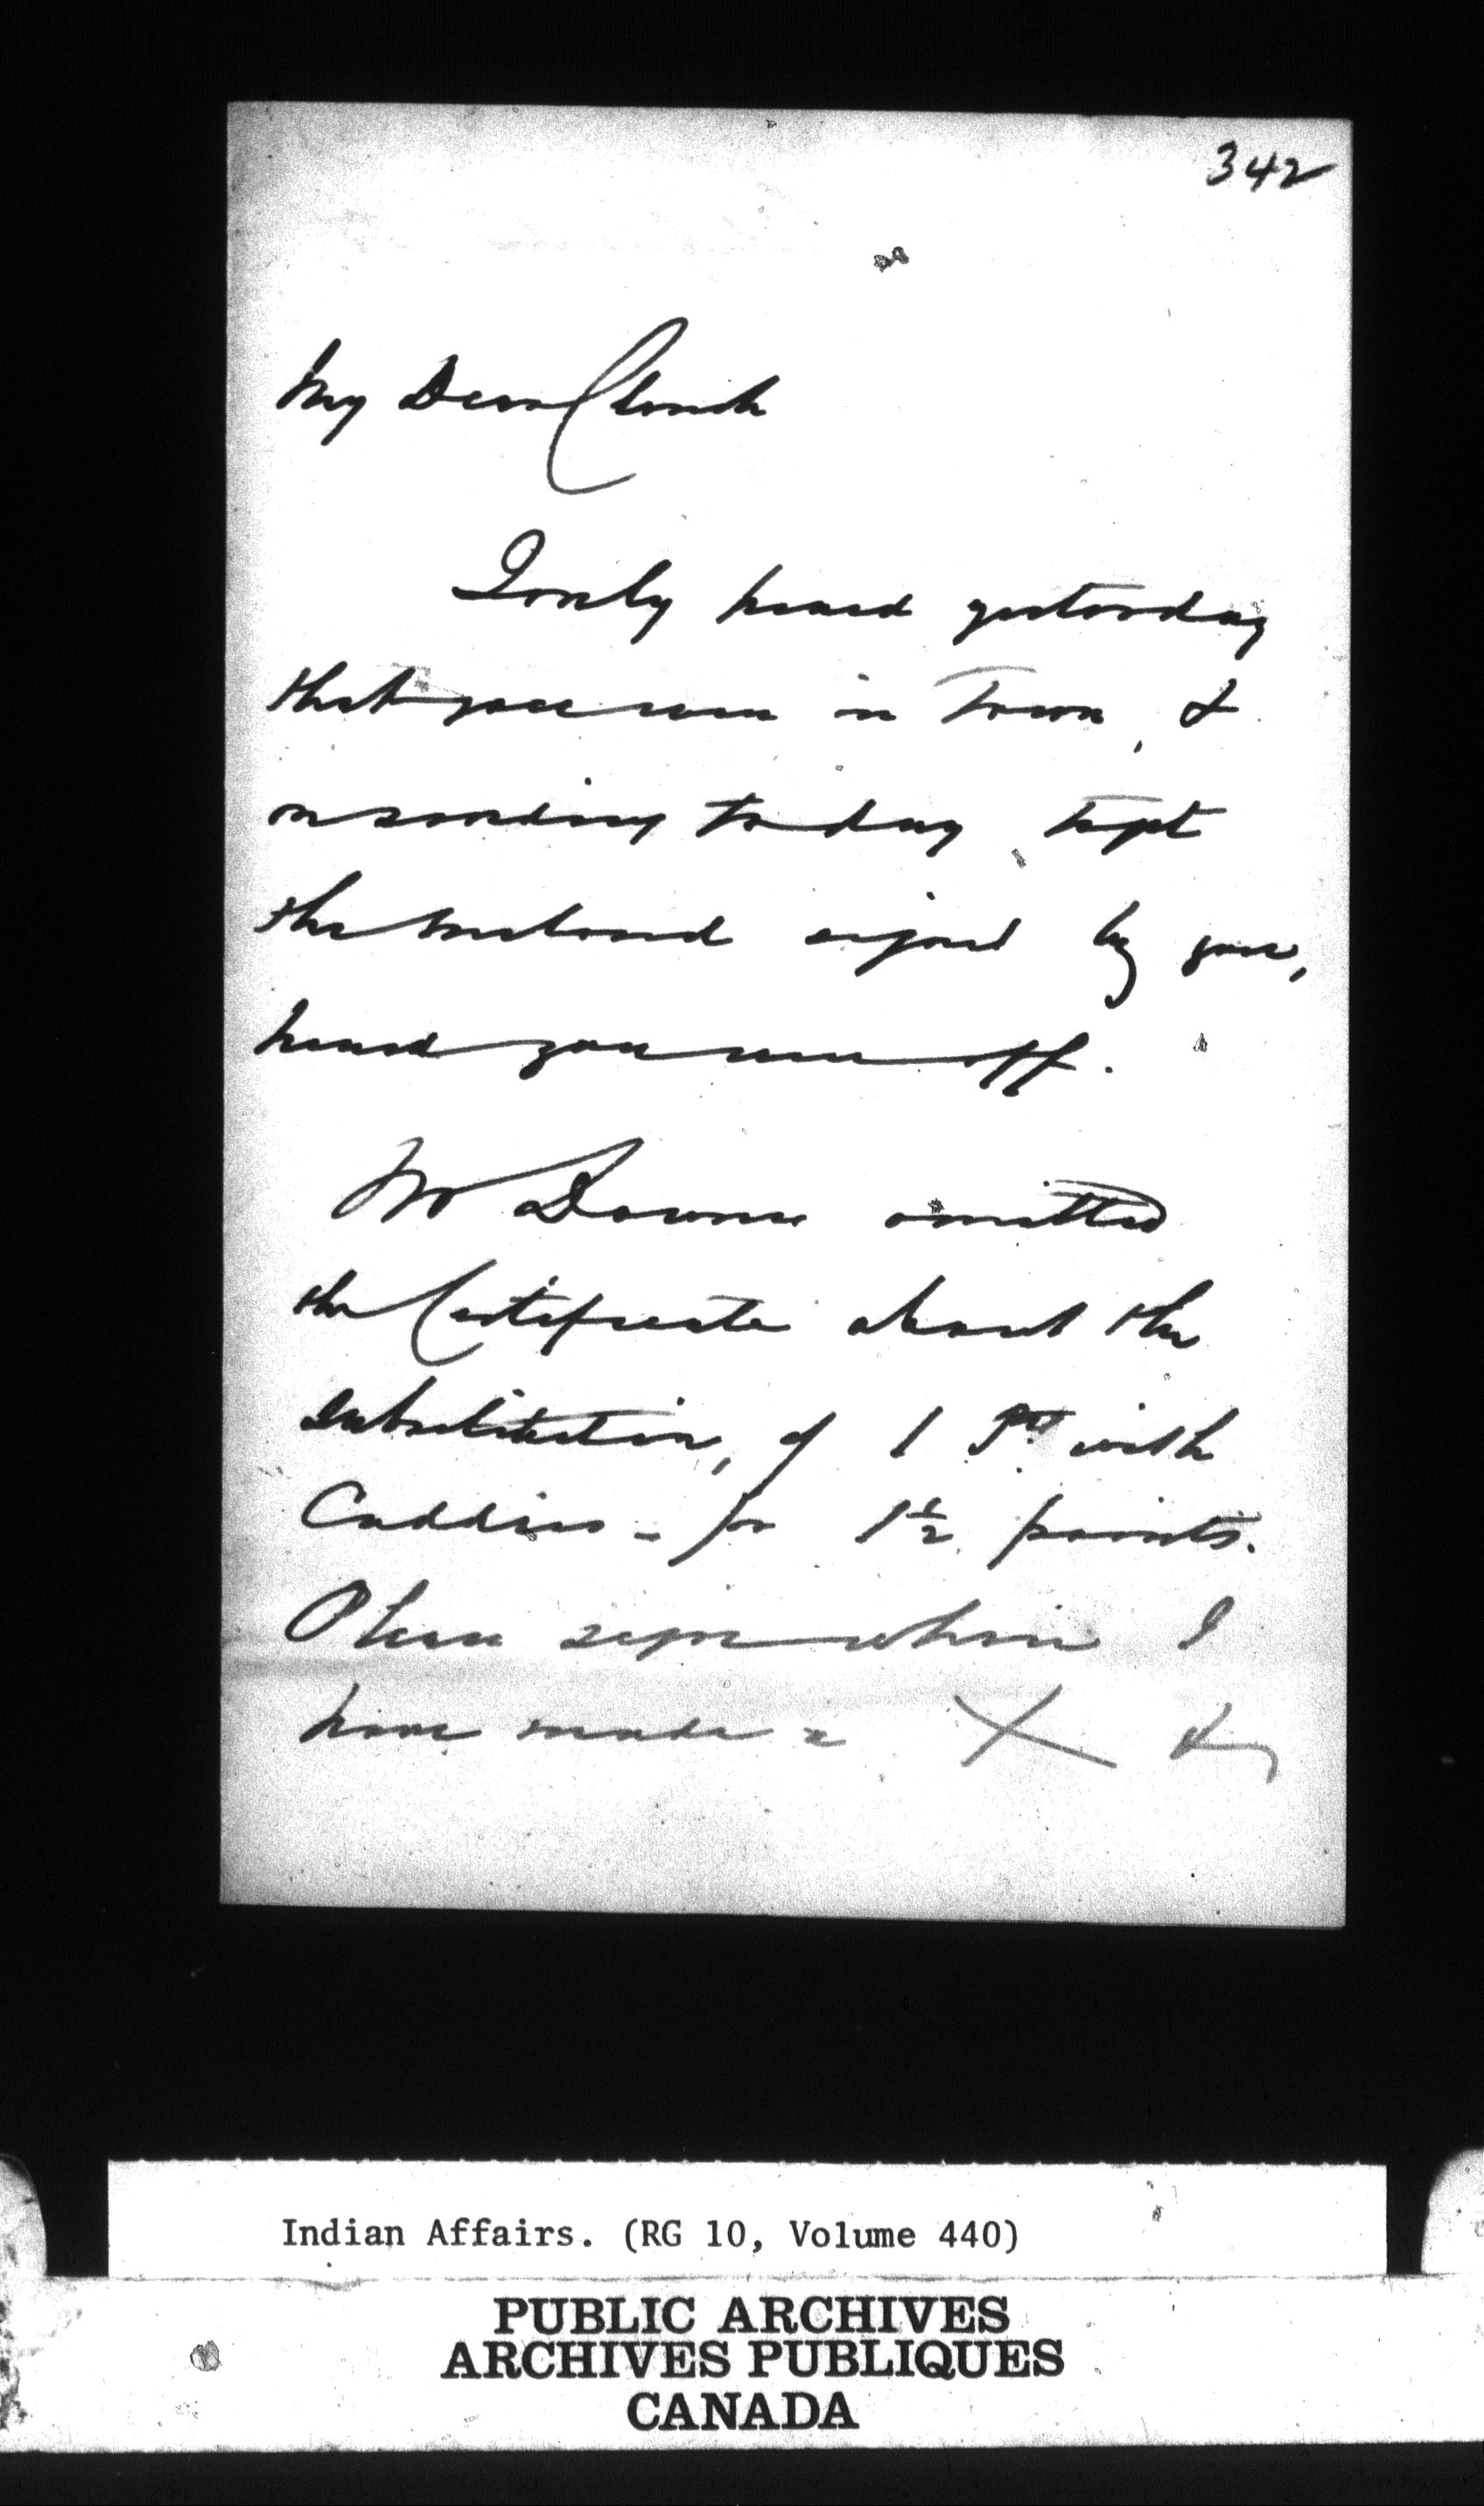 342
My Dear Clench
I only heard yesterday
that you were in Town, &
on sending to day to get
the enclosed signed by you,
heard you were off.
Mr omitted
the Certificate about the
substitution, of 1 pr with
Caddies - for 1½ points.
Please sign where I
have made a X &
Indian Affairs. (RG 10, Volume 440)
PUBLIC ARCHIVES
ARCHIVES PUBLIQUES
CANADA